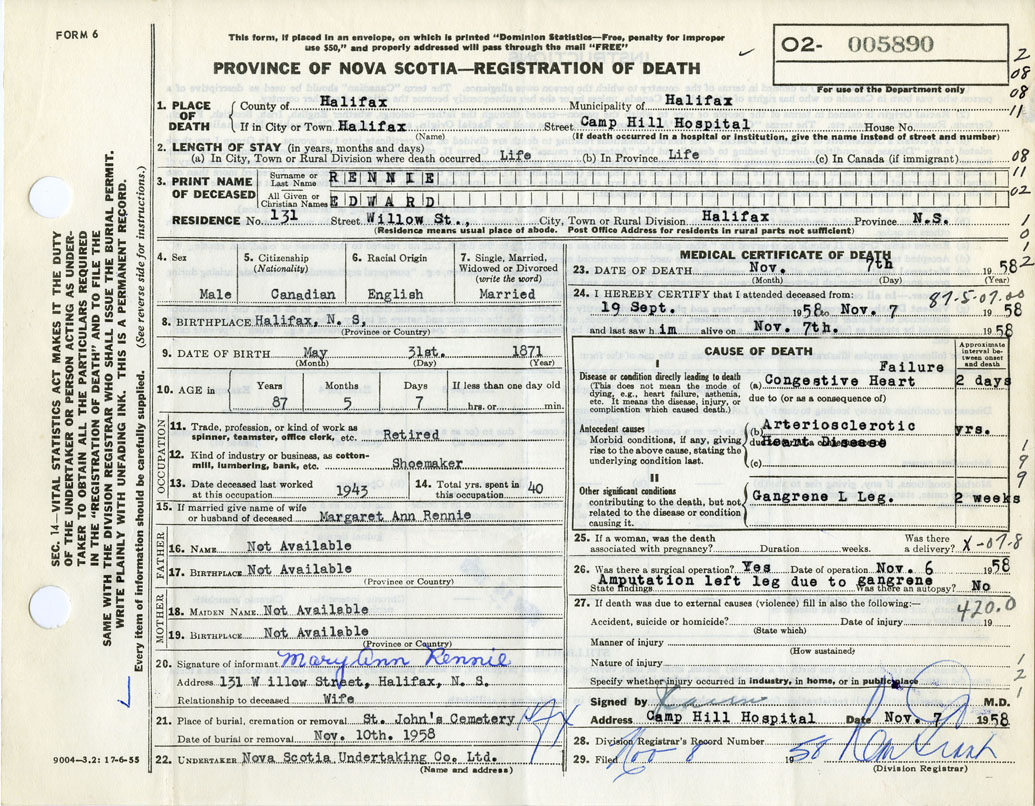 FORM 6
This form, if placed in an envelope, on which is printed "Dominion Statistics—Free, penalty for improper
use $50," and properly addressed will pass through the mail "FREE"
O2- 005890
For use of the Department only
PROVINCE OF NOVA SCOTIA—REGISTRATION OF DEATH
2
08
08
11
08
11
02
1
0
1
2
SEC. 14—VITAL STATISTICS ACT MAKES IT THE DUTY
OF THE UNDERTAKER OR PERSON ACTING AS UNDER-
TAKER TO OBTAIN ALL THE PARTICULARS REQUIRED
IN THE "REGISTRATION OF DEATH" AND TO FILE THE
SAME WITH THE DIVISION REGISTRAR WHO SHALL ISSUE THE BURIAL PERMIT.
WRITE PLAINLY WITH UNFADING INK. THIS IS A PERMANENT RECORD.
Every item of information should be carefully supplied. (See reverse side for instructions.)
1. PLACE OF DEATH
County of Halifax Municipality of Halifax
If in City or Town Halifax Street Camp Hill Hospital House No.
(Name) (If death occurred in a hospital or institution, give the name instead of street and number)
2. LENGTH OF STAY (in years, months and days)
(a) In City, Town or Rural Division where death occurred Life (b) In Province Life (c) In Canada (if immigrant)
3. PRINT NAME OF DECEASED
Surname or Last Name RENNIE
All Given or Christian Names EDWARD
RESIDENCE No. 131 Street Willow St., City, Town or Rural Division Halifax Province N.S.
(Residence means usual place of abode. Post Office Address for residents in rural parts not sufficient)
4. Sex
Male
5. Citizenship
(Nationality)
Canadian
6. Racial Origin
English
7. Single, Married,
Widowed or Divorced
(write the word)
Married
8. BIRTHPLACE Halifax, N. S,
(Province or Country)
9. DATE OF BIRTH May 31st. 1871
(Month) (Day) (Year)
10. AGE in
Years Months Days If less than one day old
87 5 7 hrs. or min.
OCCUPATION
11. Trade, profession, or kind of work as
spinner, teamster, office clerk, etc. Retired
12. Kind of industry or business, as cotton-
mill, lumbering, bank, etc. Shoemaker
13. Date deceased last worked
at this occupation 1943
14. Total yrs. spent in
this occupation 40
15. If married give name of wife
or husband of deceased Margaret Ann Rennie
FATHER
16. NAME Not Available
17. BIRTHPLACE Not Available
(Province or Country)
MOTHER
18. MAIDEN NAME Not Available
19. BIRTHPLACE Not Available
(Province or Country)
20. Signature of informant Mary Ann Rennie
Address 131 W illow Street, Halifax, N. S.
Relationship to deceased Wife
21. Place of burial, cremation or removal St. John's Cemetery Hfx
Date of burial or removal Nov. 10th. 1958
22. UNDERTAKER Nova Scotia Undertaking Co. Ltd.
(Name and address)
9004—3.2: 17-6-55
MEDICAL CERTIFICATE OF DEATH
23. DATE OF DEATH Nov. 7th 1958
(Month) (Day) (Year)
24. I HEREBY CERTIFY that I attended deceased from: 87-5-07.00
19 Sept. 1958 to Nov. 7 1958
and last saw him alive on Nov. 7th. 1958
CAUSE OF DEATH
Approximate
interval be-
tween onset
and death
I
Disease or condition directly leading to death
(This does not mean the mode of
dying, e.g., heart failure, asthenia,
etc. It means the disease, injury, or
complication which caused death.)
Failure
(a) Congestive Heart 2 days
due to (or as a consequence of)
Antecedent causes
Morbid conditions, if any, giving
rise to the above cause, stating the
underlying condition last.
(b) Arteriosclerotic yrs.
Heart Disease
(c)
1
9
9
II
Other significant conditions
contributing to the death, but not
related to the disease or condition
causing it.
Gangrene L Leg. 2 weeks
25. If a woman, was the death
associated with pregnancy? Duration weeks. Was there
a delivery? X-07-8
26. Was there a surgical operation? Yes Date of operation Nov. 6 1958
Amputation left leg due to gangrene
State findings Was there an autopsy? No
27. If death was due to external causes (violence) fill in also the following:— 420.0
Accident, suicide or homicide? Date of injury 19
(State which)
Manner of injury
(How sustained)
Nature of injury
Specify whether injury occurred in industry, in home, or in public place
1
2
1
Signed by M.D.
Address Camp Hill Hospital Date Nov. 7 1958
28. Division Registrar's Record Number
29. Filed Nov 8 19 58
(Division Registrar)